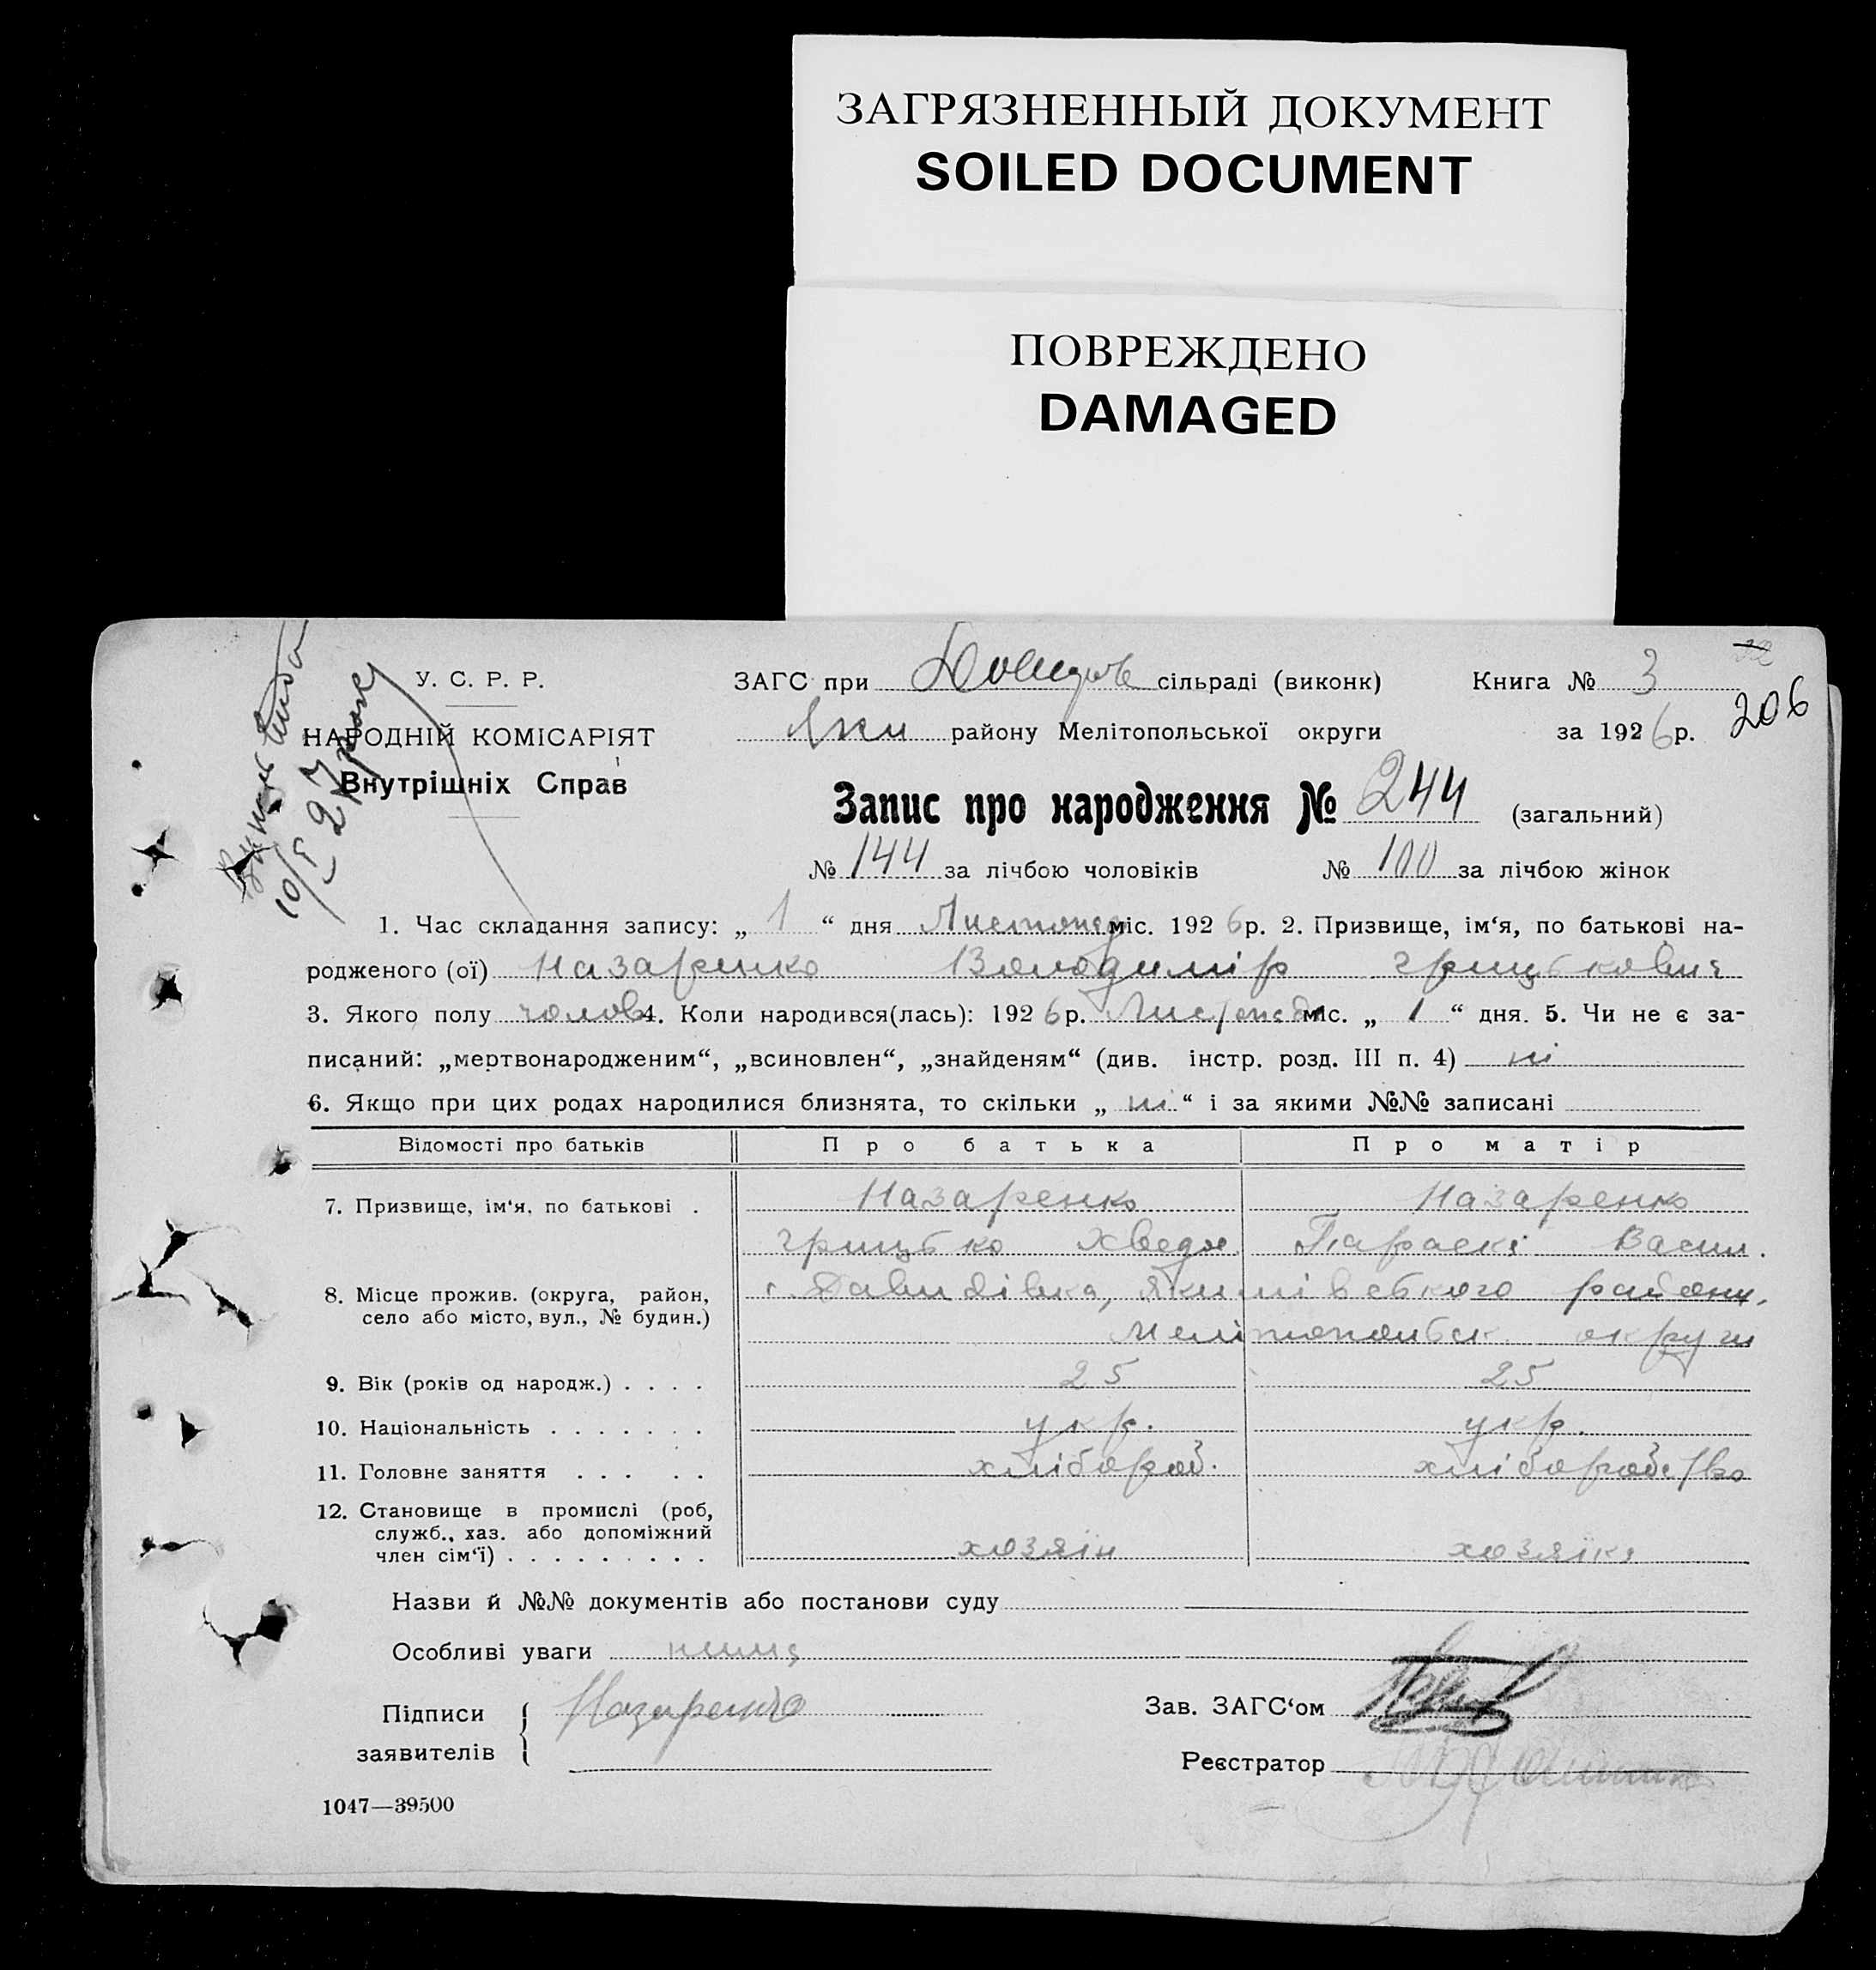 ЗАГРЯЗНЕННЫЙ ДОКУМЕНТ
SOILED DOCUMENT
ПОВРЕЖДЕНО
DAMAGED
У. С. Р. Р.
НАРОДНІЙ КОМІСАРІЯТ
Внутрішніх Справ
10/I 27
ЗАГС при сільраді (виконк) Книга № 3
206
Яким району Мелітопольської округи за 1926 р.
Запис про народження № 244 (загальний)
№ 144 за лічбою чоловіків № 100 за лічбою жінок
1. Час складання запису: „ 1 “ дня Листопад міс. 1926 р. 2. Призвище, ім‘я, по батькові на-
родженого (ої) Назаренко Володимір Грицькович
3. Якого полу чолов 4. Коли народився(лась): 1926 р. Листопада міс. „ 1 “ дня. 5. Чи не є за-
писаний: „мертвонародженим“, „всиновлен“, „знайденям“ (див. інстр. розд. III п. 4) ні
6. Якщо при цих родах народилися близнята, то скільки „ ні “ і за якими №№ записані
Відомості про батьків Про батька Про матір
7. Призвище, ім‘я, по батькові . Назаренко Назаренко
Грицько Хведо Параска Васил.
8. Місце прожив. (округа, район, село або місто, вул., № будин.) с. Давидівка, Якимівського району,
Мелітопольськ округи
9. Вік (років од народж.) . . . . 25 25
10. Національність . . . . . . . укр. укр.
11. Головне заняття . . . . . хлібороб. хліборобство
12. Становище в промислі (роб,
служб., хаз. або допоміжний
член сім‘ї) . . . . . . . . . хозяін хозяіка
Назви й №№ документів або постанови суду
Особливі уваги нима
Підписи
заявителів
Назаренко
Зав. ЗАГС‘ом
Реєстратор
1047—39500